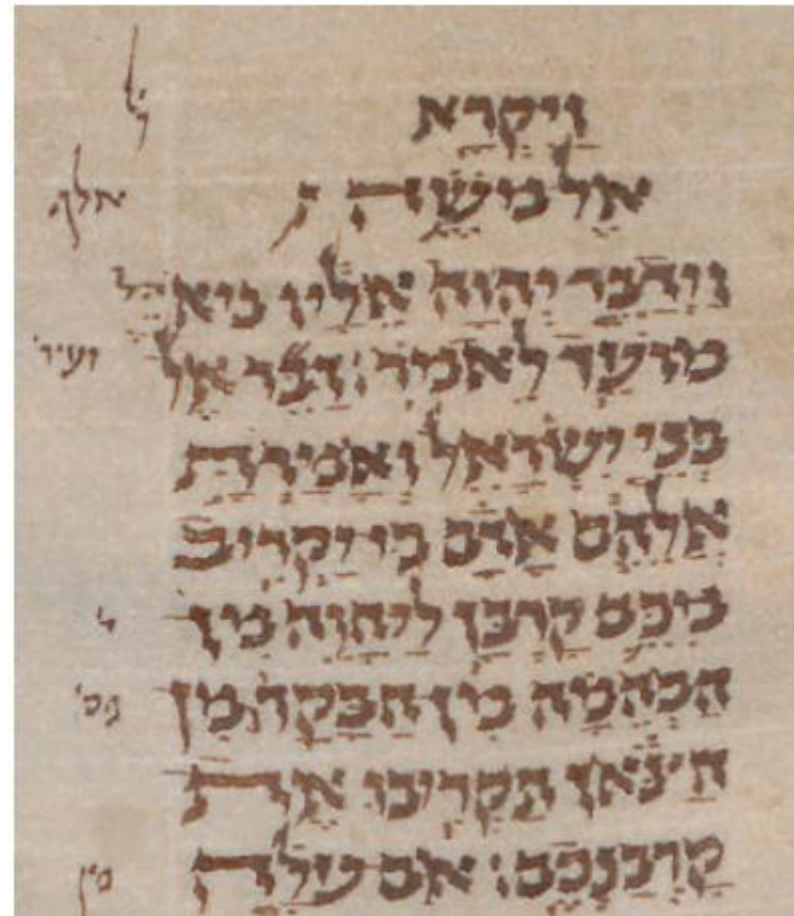 וַיִּקְרָא
אֶל מֹשֶׁה אלף
וַיְדַבֵּר יְהוָה אֵלָיו
מוֹעֵד לֵאמֹר׃ דַּבֵּר אֶל זעיר׳
בְּנֵי יִשְׂרָאֵל וְאָמַרְתָּ
אֲלֵהֶם אָדָם כִּי יַקְרִיב
מִכֶּם קָרְבָּן לַיהוָה מִן
הַבְּהֵמָה מִן הַבָּקָר וּמִן
הַצֹּאן תַּקְרִיבוּ אֶת
קָרְבַּנְכֶם׃ אִם עֹלָה